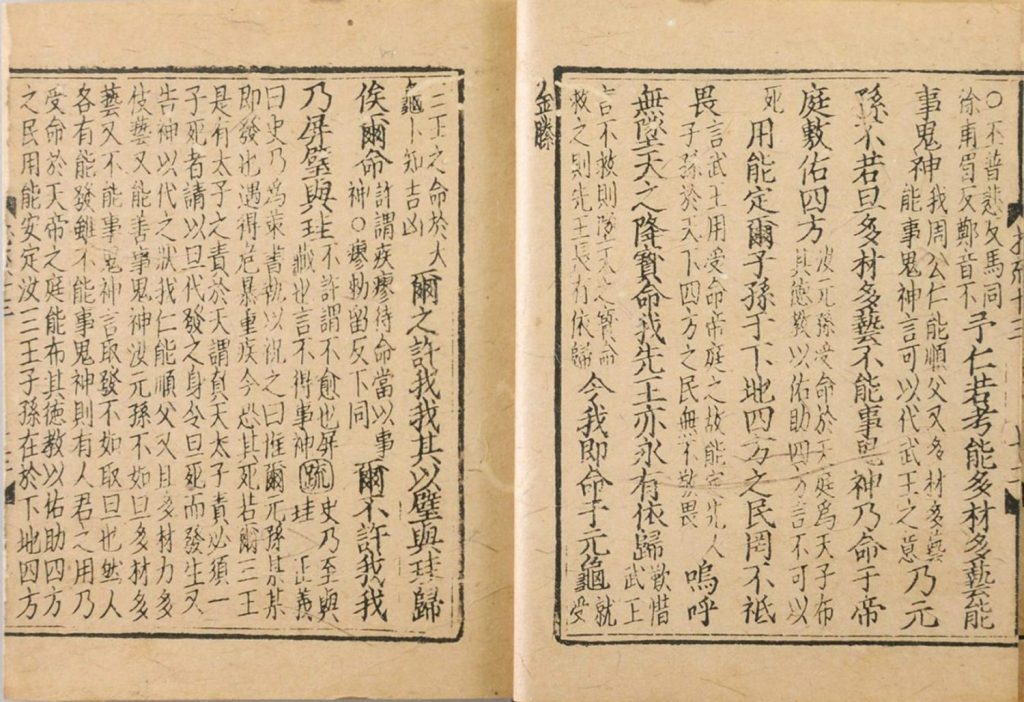 ○丕普悲反馬同
徐甫眉反鄭音不
予仁若考能多材多藝能
事鬼神
我周公仁能順父又多材多藝
能事鬼神言可以代武王之意
乃元
孫不若旦多材多藝不能事鬼神乃命于帝
庭敷佑四方
汝元孫受命於天庭為天子布
其德教以佑助四方言不可以
死
用能定爾子孫于下地四方之民罔不祗
畏
言武王用受命帝庭之故能定先人
子孫於天下四方之民無不敬畏
嗚呼
無墜天之降寶命我先王亦永有依歸
歎惜
武王
言不救則墜天之寶命
救之則先王長有依歸
今我即命于元龜
就
受
金縢
三王之命於大
龜卜知吉凶
爾之許我我其以璧與珪歸
俟爾命
許謂疾瘳待命當以事
神○瘳勑留反下同
爾不許我我
乃屏璧與珪
不許謂不愈也屏
藏也言不得事神
疏
史乃至與
珪 正義
曰史乃爲策書執以祝之曰惟爾元孫某某
即發也遘得危暴重疾今恐其死若爾三王
是有太子之責於天謂負天太子責必須一
子死者請以旦代發之身令旦死而發生又
告神以代之狀我仁能順父又且多材力多
伎藝又能善事鬼神汝元孫不如旦多材多
藝又不能事鬼神言取發不如取旦也然人
各有能發雖不能事鬼神則有人君之用乃
受命於天帝之庭能布其德教以佑助四方
之民用能安定汝三王子孫在於下地四方